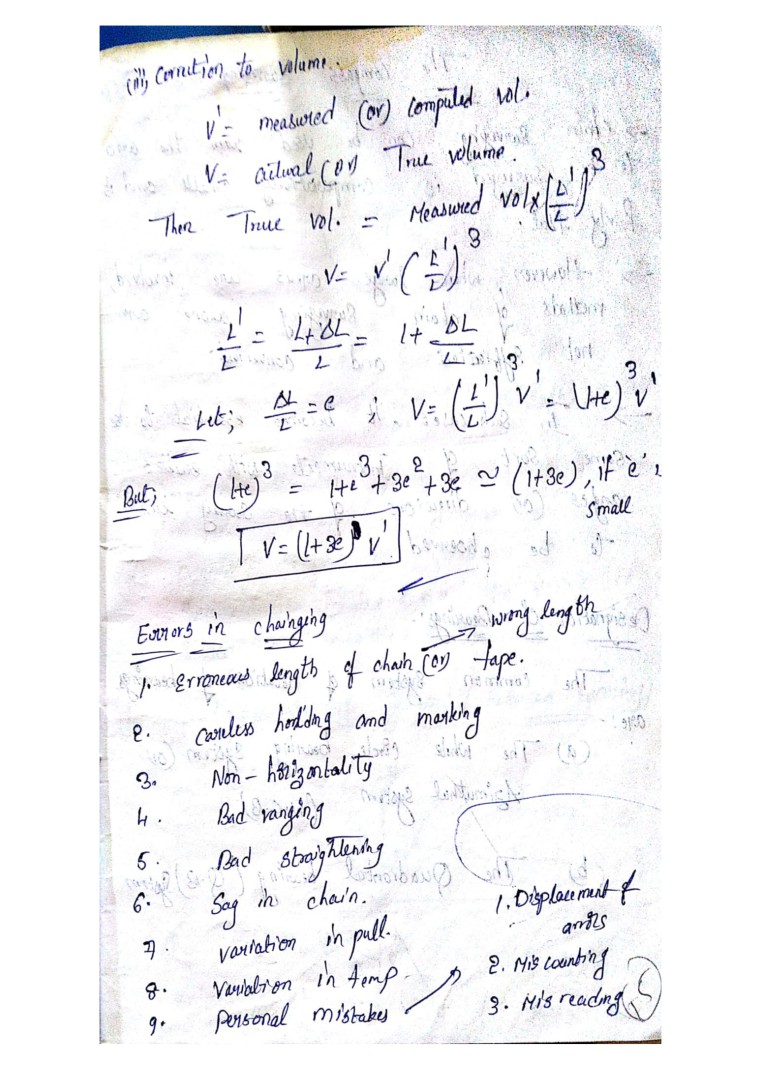 (iii) Correction to volume.
V' = measured (or) computed vol.
V = actual (or) True volume.
Then True vol. = Measured vol x (L'/L)^3
V = V' (L'/L)^3
L'/L = L+ΔL/L = 1+ ΔL/L
Let; ΔL/L = e ; V = (L'/L)^3 V' = (1+e)^3 V'
But; (1+e)^3 = 1+e^3+3e^2+3e ≃ (1+3e), if 'e' is
small
V = (1+3e) V'
Errors in chainging
→ wrong length
1. Erroneous length of chain (or) tape.
2. Careless holding and marking
3. Non-horizontality
4. Bad ranging
5. Bad straightening
6. Sag in chain.
7. variation in pull.
8. Variation in temp.
9. Personal mistakes →
1. Displacement of
arrows
2. Miscounting
3. Mis reading
5